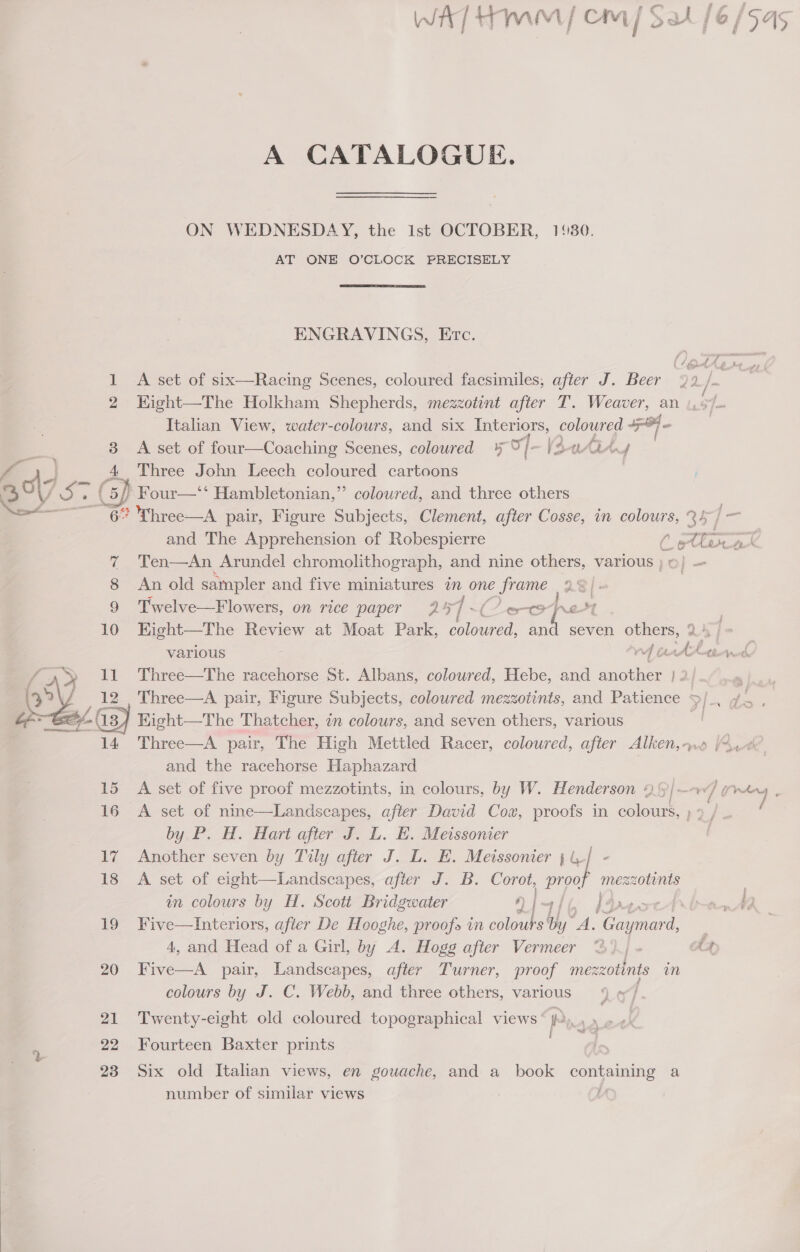 WA/HMM/CM/Sal/6/595
A CATALOGUE.
ON WEDNESDAY, the 1st OCTOBER, 1930.
AT ONE O'CLOCK PRECISELY
ENGRAVINGS, Etc.
1 A set of six—Racing Scenes, coloured facsimiles, after J. Beer 22/-
2 Eight—The Holkham Shepherds, mezzotint after T. Weaver, an
Italian View, water-colours, and six Interiors, coloured
3 A set of four—Coaching Scenes, coloured
4 Three John Leech coloured cartoons
5 Four—“Hambletonian,” coloured, and three others
6 Three—A pair, Figure Subjects, Clement, after Cosse, in colours,
and The Apprehension of Robespierre
7 Ten—An Arundel chromolithograph, and nine others, various
8 An old sampler and five miniatures in one frame 28/-
9 Twelve—Flowers, on rice paper
10 Eight—The Review at Moat Park, coloured, and seven others,
various
11 Three—The racehorse St. Albans, coloured, Hebe, and another
12 Three—A pair, Figure Subjects, coloured mezzotints, and Patience
13 Eight—The Thatcher, in colours, and seven others, various
14 Three—A pair, The High Mettled Racer, coloured, after Alken,
and the racehorse Haphazard
15 A set of five proof mezzotints, in colours, by W. Henderson
16 A set of nine—Landscapes, after David Cox, proofs in colours,
by P. H. Hart after J. L. E. Meissonier
17 Another seven by Tily after J. L. E. Meissonier
18 A set of eight—Landscapes, after J. B. Corot, proof mezzotints
in colours by H. Scott Bridgwater
19 Five—Interiors, after De Hooghe, proofs in colours by A. Gaymard,
4, and Head of a Girl, by A. Hogg after Vermeer
20 Five—A pair, Landscapes, after Turner, proof mezzotints in
colours by J. C. Webb, and three others, various
21 Twenty-eight old coloured topographical views
22 Fourteen Baxter prints
23 Six old Italian views, en gouache, and a book containing a
number of similar views